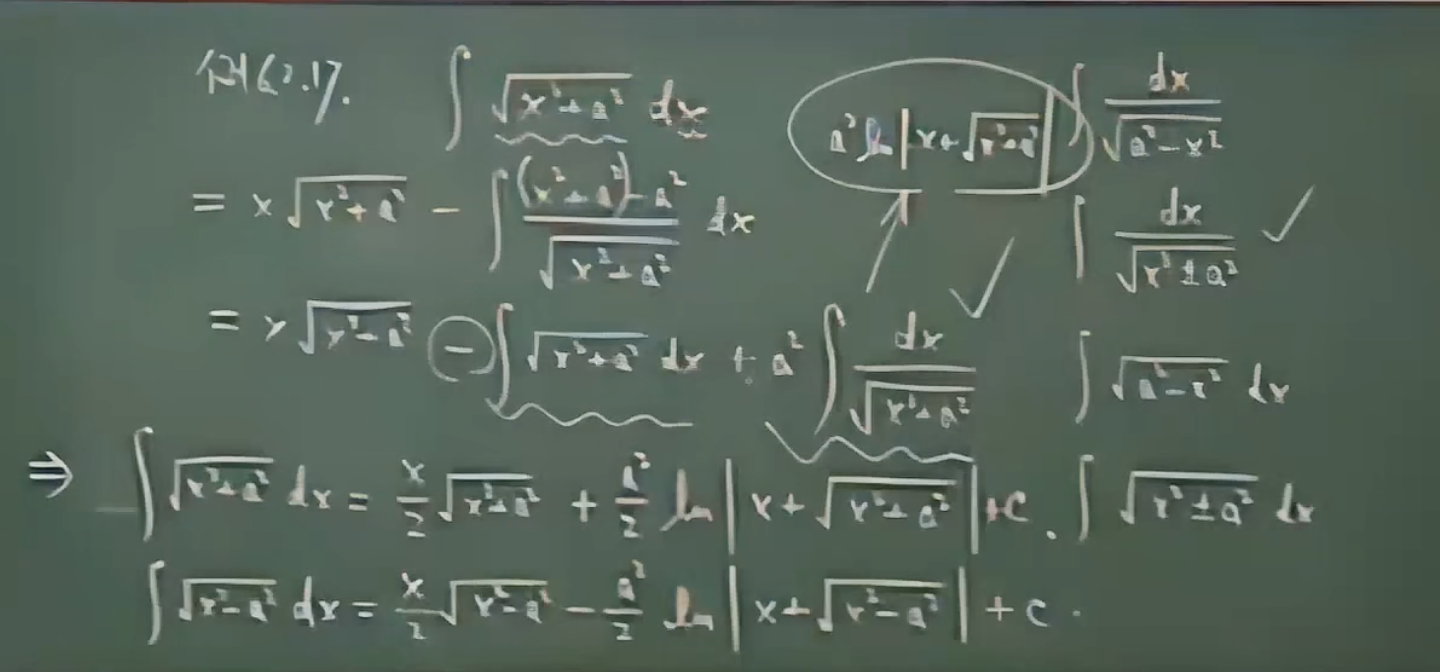 例62.17. ∫ √(x²+a²) dx
= x√(x²+a²) − ∫ ((x²+a²)−a²)/√(x²+a²) dx
= x√(x²+a²) − ∫ √(x²+a²) dx + a² ∫ dx/√(x²+a²)
⇒ ∫ √(x²+a²) dx = x/2 √(x²+a²) + a²/2 ln|x+√(x²+a²)| + c.
∫ √(x²−a²) dx = x/2 √(x²−a²) − a²/2 ln|x+√(x²−a²)| + c.
a² ln|x+√(x²+a²)|
∫ dx/√(a²−x²)
∫ dx/√(x²±a²) ✓
✓
∫ √(a²−x²) dx
∫ √(x²±a²) dx